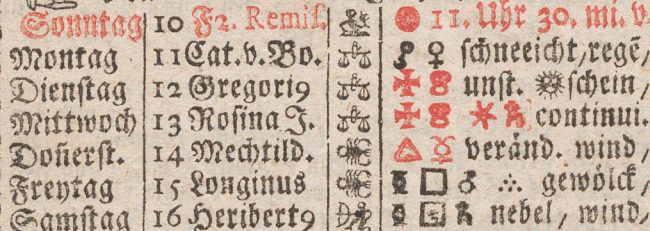 Sonntag 10 F2. Remiſ. 11. Uhr 30. mi. v.
Montag 11 Cat. v. Bo. ☍ ♀ ſchneeicht, regẽ,
Dienſtag 12 Gregoriꝰ unſt. ſchein,
Mittwoch 13 Roſina J. continui.
Doñerſt. 14 Mechtild. △ ☿ veränd. wind,
Freytag 15 Longinus □ ♂ gewölck,
Samſtag 16 Heribertꝰ nebel, wind,